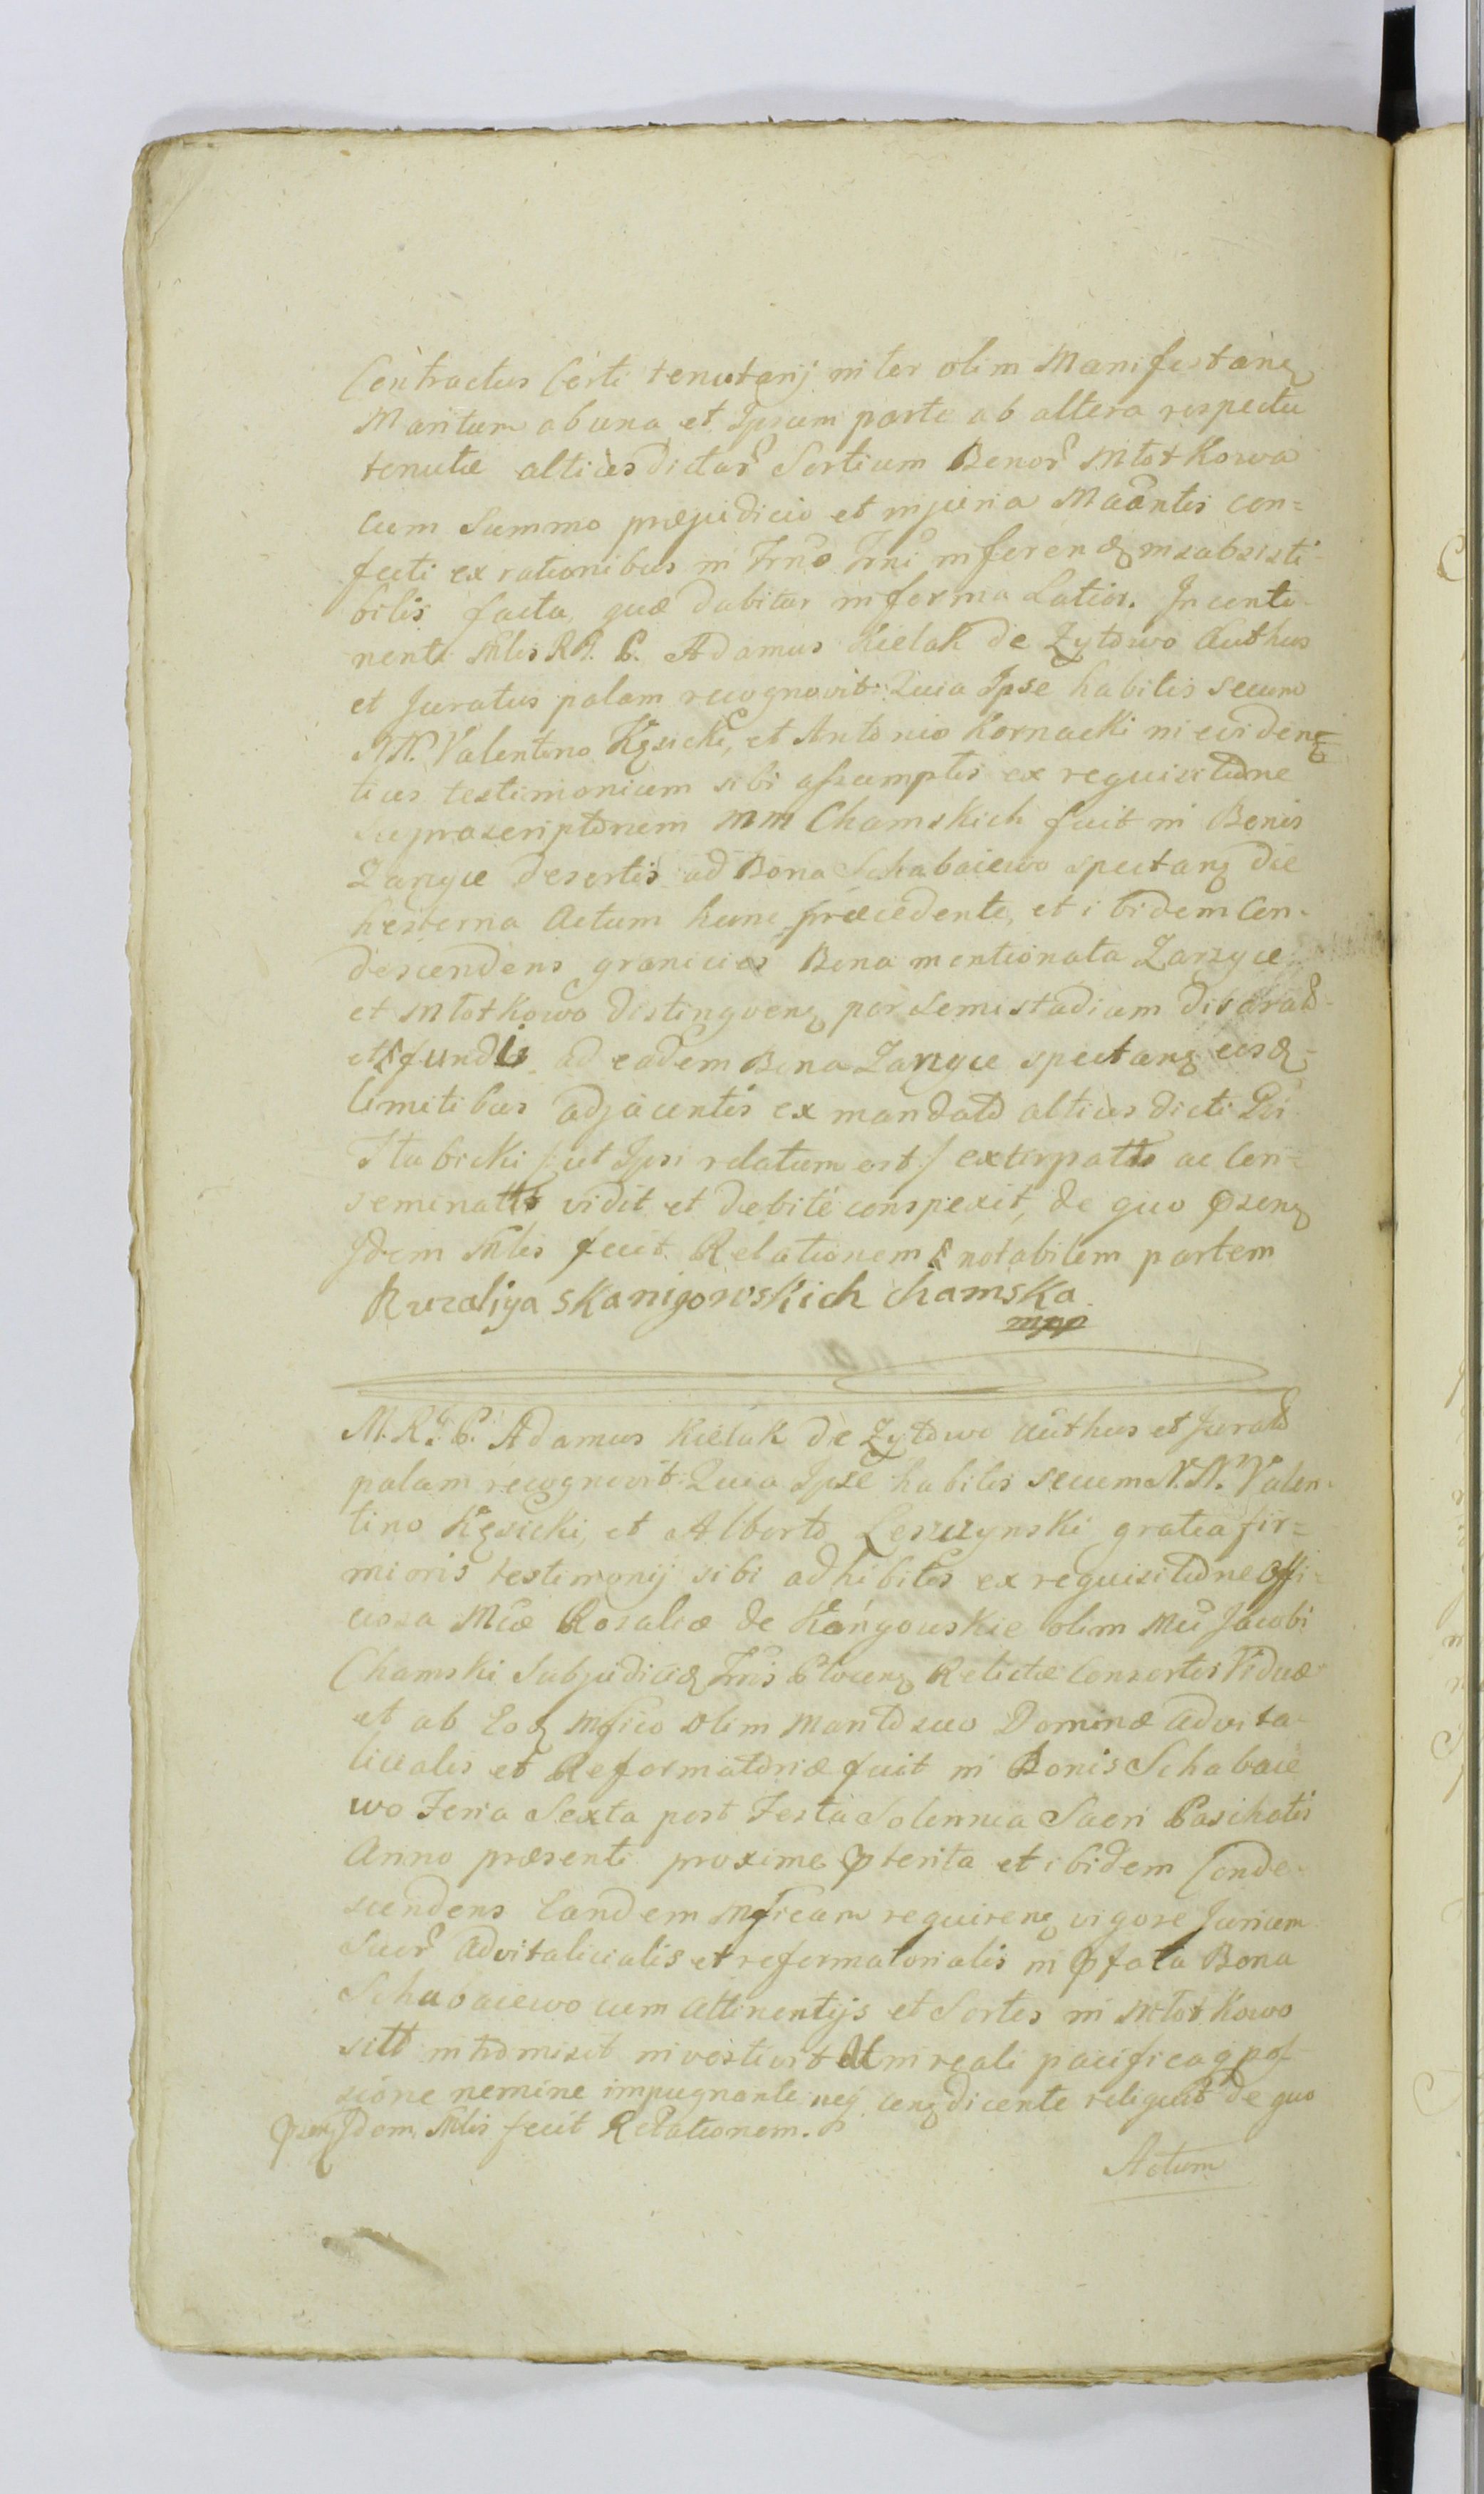 Contractus Certi tenutarij inter olim Manifestanę
Maritum ab una et Ipsum parte ab altera respectu
tenutæ altius dictar Sortium Bonor Młotkowa
cum Summo præjudicio et injuria Maantis con=
fecti ex rationibus in Trno Trni inferen& insubsisti
bilis facta, quæ dabitur in forma Latior. In conti
nenti Mlis RP. P. Adamus Kielak de Zytowo Authus
et Juratus palam recognovit: Quia Ipse habitis secum
NN. Valentino Kęsicki, et Antonio Kornacki in eviden
tius testimonium sibi assumptis ex requisitione
supra scriptorem MM Chamskich fuit in Bonis
Zarzyce desertis ad Bona Schabaiewo spectanę die
hesterna Actum hunc præcedente, et ibidem Con-
descendens granicies Bona mentionata Zarzyce
et Młotkowo distingvenę per semistadium disarat
et fundis ad eadem Bona Zarzyce spectanę eisq-
limitibus adjacentis ex mandato altius dicti Dni
Słubicki /: ut Ipsi relatum est :/ extirpatts ac Con=
seminatts vidit et debité conspexit, de quo pszenę
Idem Mlis fecit Relationem notabilem partem
Ruzaliya skanigowskich chamska
mpp
M. RP. P. Adamus Kielak de Zytowo Authus et Jurats
palam recognovit: Quia Ipse habitis secum N.N. Valen-
tino Kęsicki, et Alberto Leszczynski gratia fir=
mioris testimonij sibi adhibitis ex requisitione offi=
ciosa Mcæ Rosaliæ de Kangowskie olim Mci Jacobi
Chamski Subjudicis Trris Plocenę Relictæ Consortis Viduæ
et ab Eoq Mfico olim Marito suo Dominæ advita-
licialis et Reformatoriæ fuit in Bonis Schabaie
wo Feria Sexta post Festa Solennia Sacri Paschatis
Anno præsenti proxime pterita et ibidem Conde-
scendens Eandem Mficam requirenę vigore Jurium
Suor Advitalicialis et reformatorialis in pfata Bona
Schabaiewo cum Attinentijs et Sortes in Młotkowo
sitt intromisit investivit in reali pacificaq pos
sione nemine impugnante neq conę dicente reliquit de quo
pszenę Idem Mlis fecit Relationem.
Actum